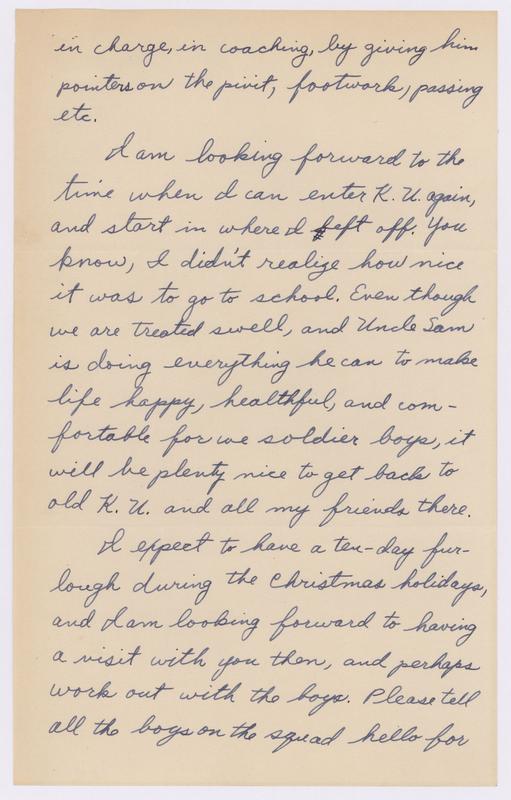 in charge, in coaching, by giving him
pointers on the pivit, footwork, passing
etc.
I am looking forward to the
time when I can enter K. U. again,
and start in where I left off. You
know, I didn't realize how nice
it was to go to school. Even though
we are treated swell, and Uncle Sam
is doing everything he can to make
life happy, healthful, and com-
fortable for we soldier boys, it
will be plenty nice to get back to
old K. U. and all my friends there.
I expect to have a ten-day fur-
lough during the Christmas holidays,
and I am looking forward to having
a visit with you then, and perhaps
work out with the boys. Please tell
all the boys on the squad hello for